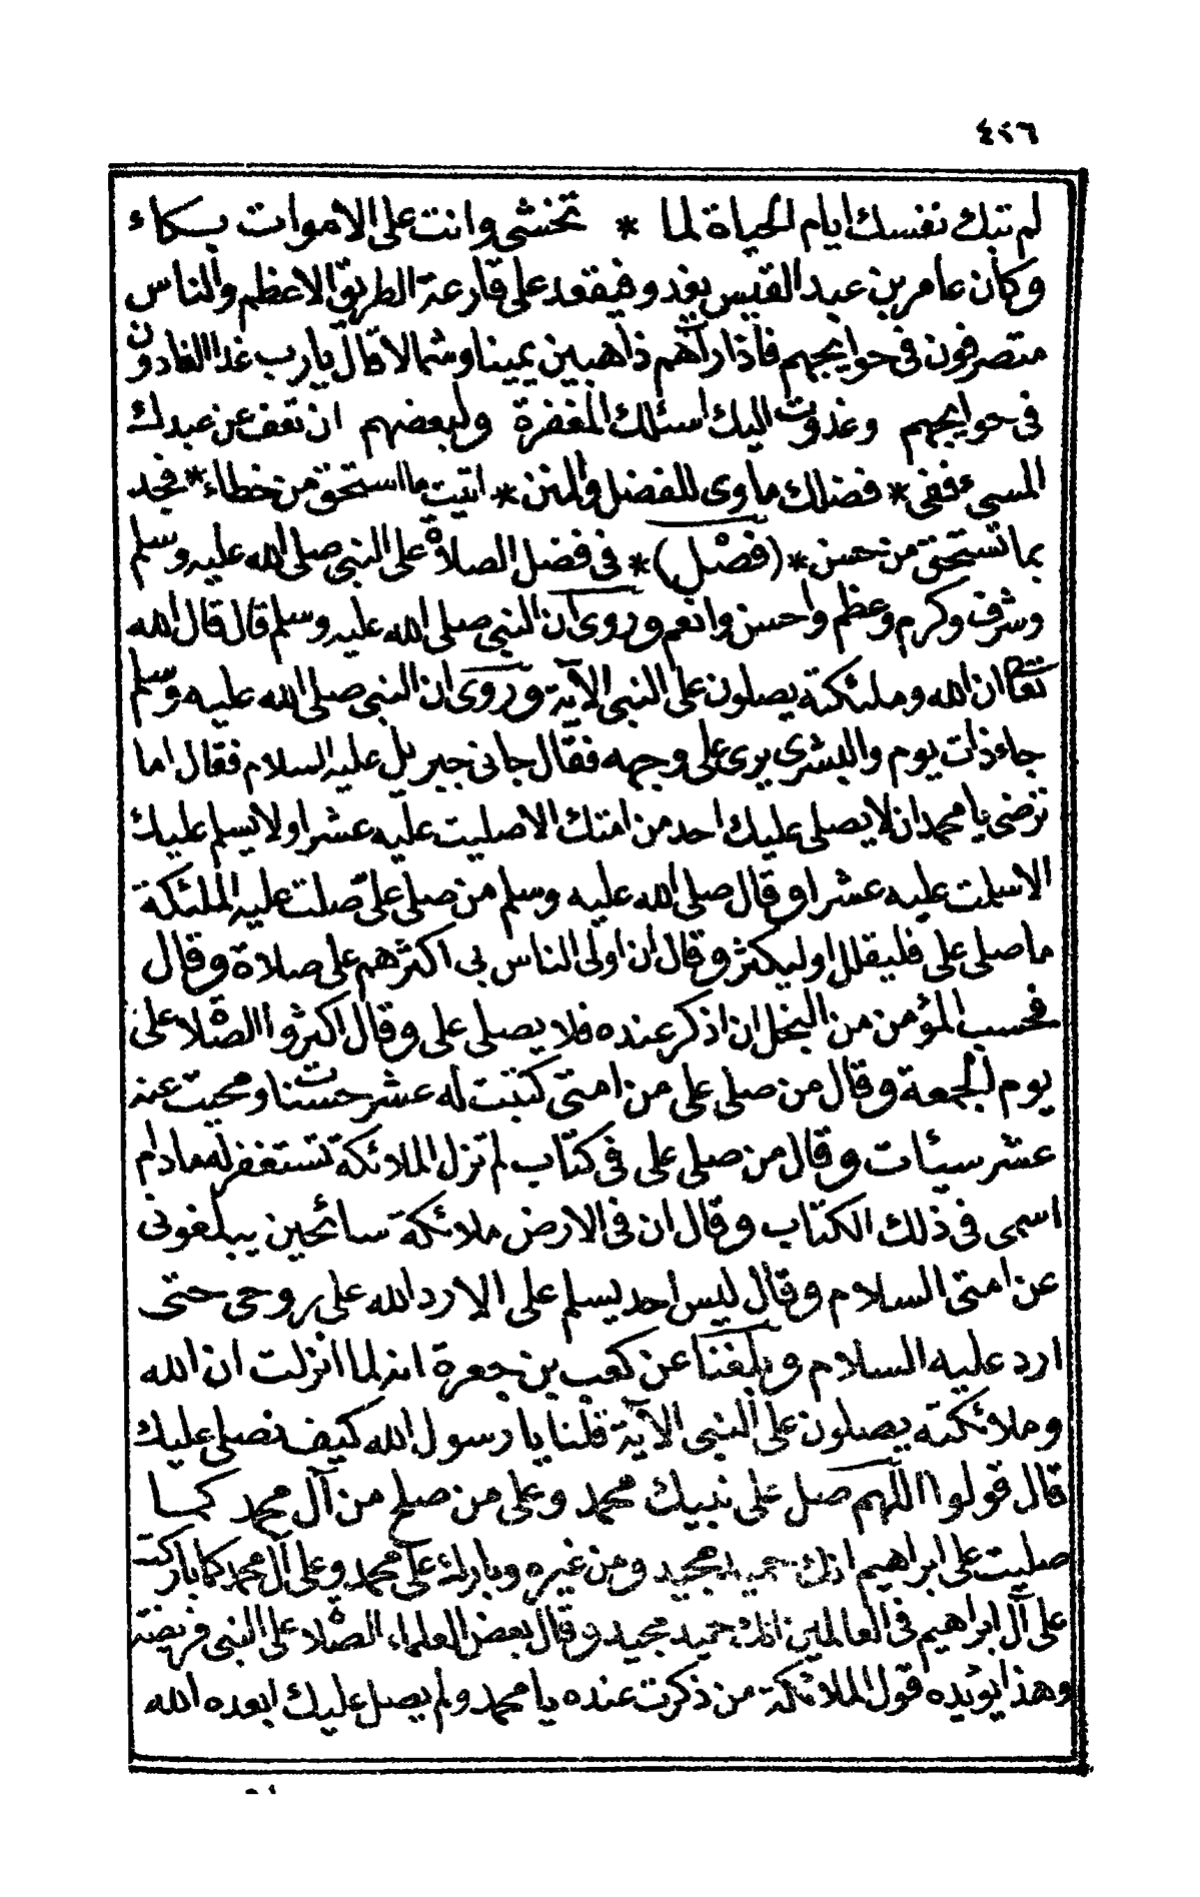 ٤٢٦
لم تبك نفسك ايام الحياة لما * تخشى وانت على الاموات بكاء
وكان عامر بن عبد القيس يغدو فيقعد على قارعة الطريق الاعظم والناس
متصرفون في حوايجهم فاذا رآهم ذاهبين يمينا وشمالا قال يارب غدا الغادون
في حوايجهم وغدوت اليك اسئلك المغفرة ولبعضهم ان تعف عن عبدك
المسيء ففي * فضلك ماوى للفضل والمنن * اتيت ما استحق من خطاء * فجد
بما تستحق من حسن * (فصل) * في فضل الصلاة على النبي صلى الله عليه وسلم
وشرف وكرم وعظم واحسن وانعم وروى ان النبي صلى الله عليه وسلم قال قال الله
تعا ان الله وملئكته يصلون على النبي الآية وروى ان النبي صلى الله عليه وسلم
جاء ذات يوم والبشرى يرى على وجهه فقال جاني جبريل عليه السلام فقال اما
ترضى يا محمد ان لا يصلى عليك احد من امتك الا صليت عليه عشرا ولا يسلم عليك
الا سلمت عليه عشرا وقال صلى الله عليه وسلم من صلى علىّ صلت عليه الملئكة
ما صلى على فليقلل او ليكثر وقال ان اولى الناس بى اكثرهم على صلاة وقال
فحسب المؤمن من البخل ان اذكر عنده فلا يصلى على وقال اكثروا الصلاة على
يوم الجمعة وقال من صلى على من امتى كتبت له عشر حسنات ومحيت عنه
عشر سيئات وقال من صلى على فى كتاب لم تزل الملائكة تستغفر له مادام
اسمى فى ذلك الكتاب وقال ان فى الارض ملائكة سائحين يبلغونى
عن امتى السلام وقال ليس احد يسلم على الا رد الله على روحى حتى
ارد عليه السلام وبلغنا عن كعب بن جعرة انه لما انزلت ان الله
وملائكته يصلون على النبى الآية قلنا يا رسول الله كيف نصلى عليك
قال قولوا اللهم صل على نبيك محمد وعلى من صلح من آل محمد كما
صليت على ابراهيم انك حميد مجيد ومن غيره وبارك على محمد وعلى آل محمد كما باركت
على آل ابراهيم فى العالمين انك حميد مجيد وقال بعض العلماء الصلاة على النبى فريضة
وهذا يؤيده قول الملائكة من ذكرت عنده يا محمد ولم يصل عليك ابعده الله